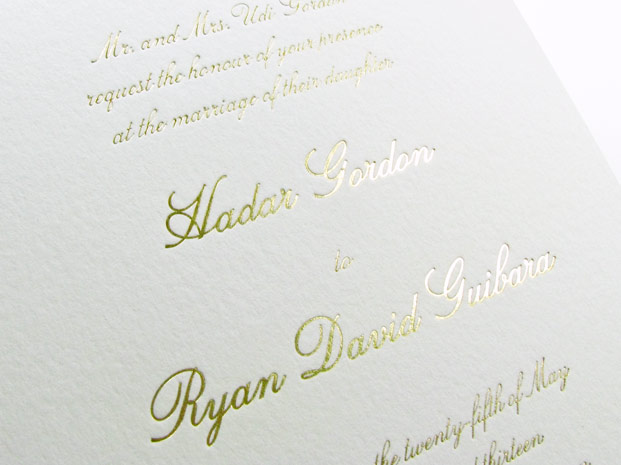 Mr. and Mrs. Udi Gordon
request the honour of your presence
at the marriage of their daughter
Hadar Gordon
to
Ryan David Guibara
the twenty-fifth of May
thirteen